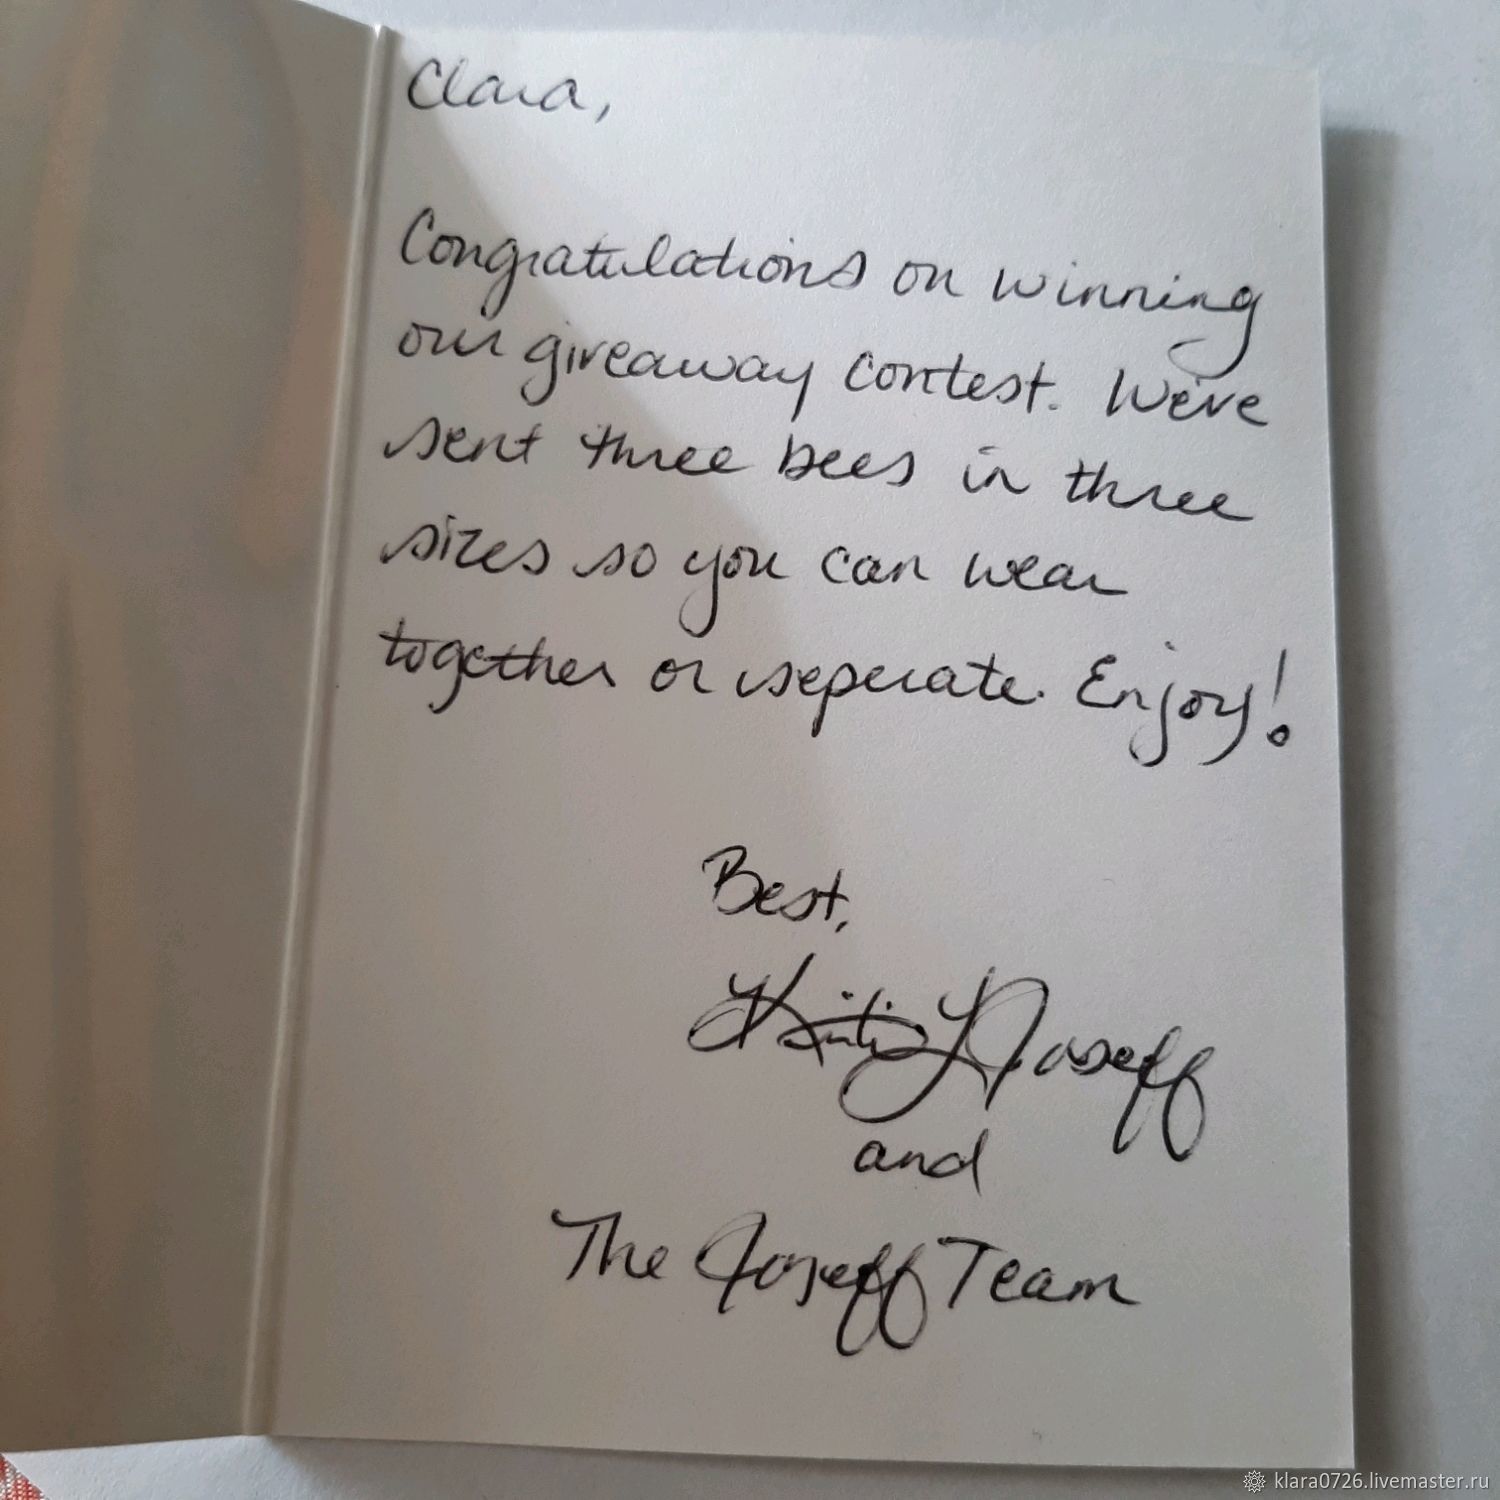 Clara,
Congratulations on winning
our giveaway contest. We've
sent three bees in three
sizes so you can wear
together or seperate. Enjoy!
Best,
Joseff
and
The Joseff Team
klara0726.livemaster.ru